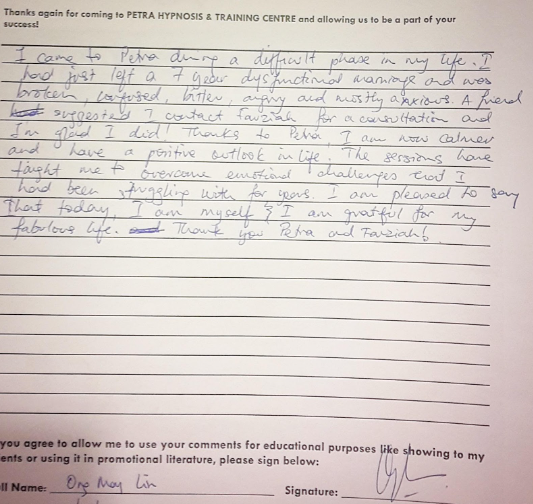 Thanks again for coming to PETRA HYPNOSIS & TRAINING CENTRE and allowing us to be a part of your
success!
I came to Petra during a difficult phase in my life. I
had just left a 7 year dysfunctional marriage and was
broken, confused, bitter, angry and mostly anxious. A friend
suggested I contact Fauziah for a consultation and
I'm glad I did! Thanks to Petra, I am now calmer
and have a positive outlook in life. The sessions have
taught me to overcome emotional challenges that I
had been struggling with for years. I am pleased to say
that today, I am myself & I am grateful for my
fabulous life. Thank you Petra and Fauziah!
you agree to allow me to use your comments for educational purposes like showing to my
ents or using it in promotional literature, please sign below:
ll Name: Ong May Lin Signature: